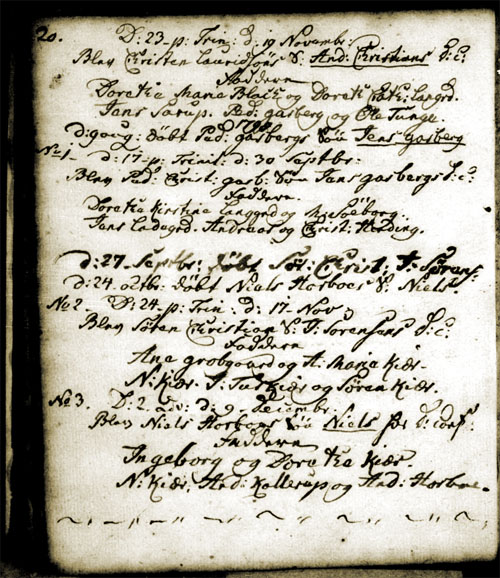 20. D: 23 - p: Trin: d: 19 Novembr:
Blev Christen Lauridsøns S: And: Christians d: C:
Faddern
Doratha Maria Black og Dorath Cath: Langrd.
Jens Sarup. Ped: gasberg og Ole Tunge.
d: 9 aug: døbt Ped: gasbergs Søn Jens gasberg
No 1 - d: 17 - p: Trinit: d: 30 Septbr:
Blev Ped: Christ: gasb: Søn Jens gasbergs d: C:
Faddern.
Doratha Kirstina Langgrd og Soleborg.
Jens Ladegrd. Andreas og Christ: Herding.
d: 27 - Septbr: døbt Sør: Christ: J: Sørens:
d: 24 octbr: døbt Niels Horboes S: Niels.
No 2 - D: 24 p: Trin: d: 17 - Nov
Blev Søfren Christian S: J: Sorensens d: C:
Faddern
Ana grobgaard og A: Maria Kiær -
N: Kiær. J: Kiær og Søren Kiær.
No 3. D: 2 Adv: d: 9 Decembr:
Blev Niels Horboes Søn Niels d: conf:
Faddern
Ingeborg og Doratha Kiær.
N: Kiær. And: Kollerup og And: Horboe -